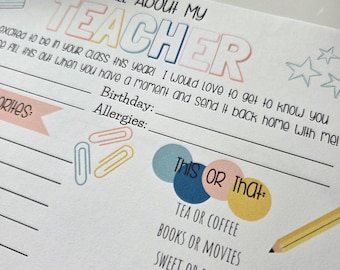 ALL ABOUT MY
TEACHER
excited to be in your class this year! I would love to get to know you
fill this out when you have a moment and send it back home with me!
Birthday:
Allergies:
THIS OR THAT:
TEA OR COFFEE
BOOKS OR MOVIES
SWEET OR